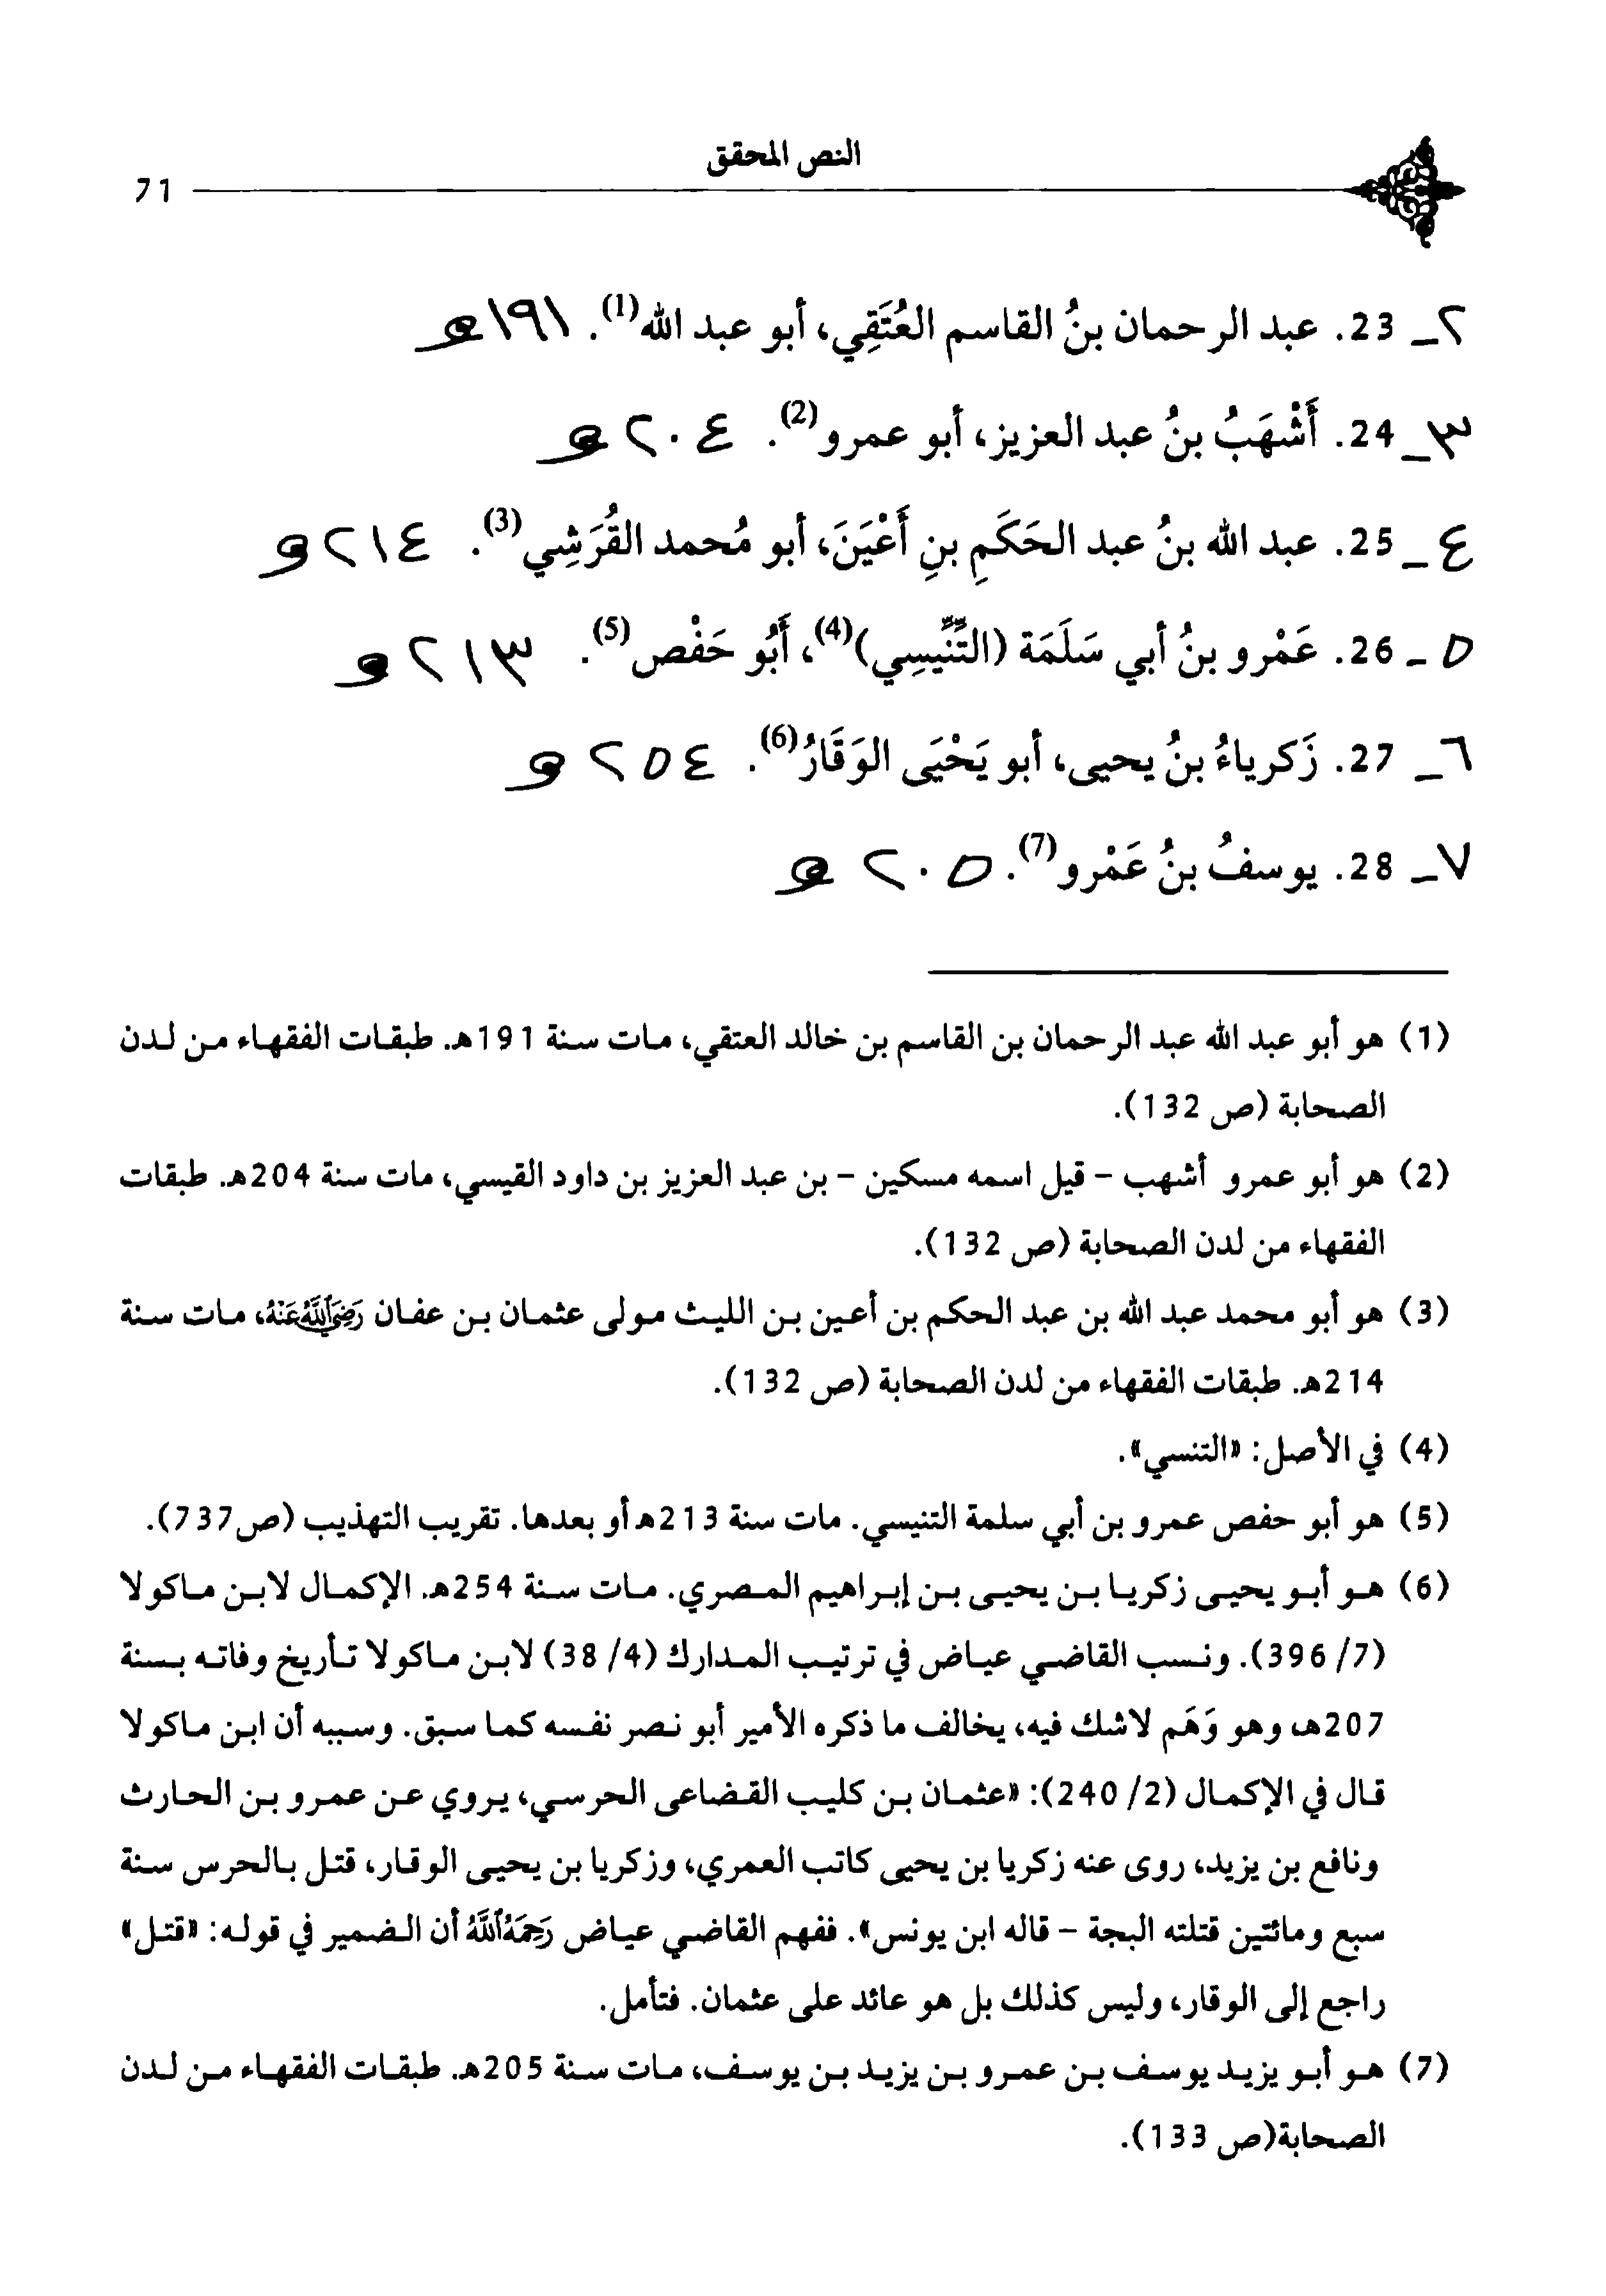 النص المحقق
71
٢ـ 23. عبد الرحمان بنُ القاسم العُتَقِي، أبو عبد الله(1). ١٩١هـ
٣ـ 24. أَشْهَبُ بنُ عبد العزيز، أبو عمرو(2). ٢٠٤هـ
٤ـ 25. عبد الله بنُ عبد الحَكَمِ بنِ أَعْيَنَ، أبو مُحمد القُرَشِي(3). ٢١٤هـ
٥ـ 26. عَمْرو بنُ أبي سَلَمَة (التِّنِّيسِي)(4)، أَبُو حَفْص(5). ٢١٣هـ
٦ـ 27. زَكرياءُ بنُ يحيى، أبو يَحْيَى الوَقَارُ(6). ٢٥٤هـ
٧ـ 28. يوسفُ بنُ عَمْرو(7). ٢٠٥هـ
(1) هو أبو عبد الله عبد الرحمان بن القاسم بن خالد العتقي، مات سنة 191هـ. طبقات الفقهاء من لدن
الصحابة (ص 132).
(2) هو أبو عمرو أشهب - قيل اسمه مسكين - بن عبد العزيز بن داود القيسي، مات سنة 204هـ. طبقات
الفقهاء من لدن الصحابة (ص 132).
(3) هو أبو محمد عبد الله بن عبد الحكم بن أعين بن الليث مولى عثمان بن عفان رَضِيَ اللَّهُ عَنْهُ، مات سنة
214هـ. طبقات الفقهاء من لدن الصحابة (ص 132).
(4) في الأصل: «التنسي».
(5) هو أبو حفص عمرو بن أبي سلمة التنيسي. مات سنة 213هـ أو بعدها. تقريب التهذيب (ص737).
(6) هو أبو يحيى زكريا بن يحيى بن إبراهيم المصري. مات سنة 254هـ. الإكمال لابن ماكولا
(7/ 396). ونسب القاضي عياض في ترتيب المدارك (4/ 38) لابن ماكولا تأريخ وفاته بسنة
207هـ، وهو وَهَم لاشك فيه، يخالف ما ذكره الأمير أبو نصر نفسه كما سبق. وسببه أن ابن ماكولا
قال في الإكمال (2/ 240): «عثمان بن كليب القضاعى الحرسي، يروي عن عمرو بن الحارث
ونافع بن يزيد، روى عنه زكريا بن يحيى كاتب العمري، وزكريا بن يحيى الوقار، قتل بالحرس سنة
سبع ومائتين قتلته البجة - قاله ابن يونس». ففهم القاضي عياض رَحِمَهُ اللَّهُ أن الضمير في قوله: «قتل»
راجع إلى الوقار، وليس كذلك بل هو عائد على عثمان. فتأمل.
(7) هو أبو يزيد يوسف بن عمرو بن يزيد بن يوسف، مات سنة 205هـ. طبقات الفقهاء من لدن
الصحابة(ص 133).